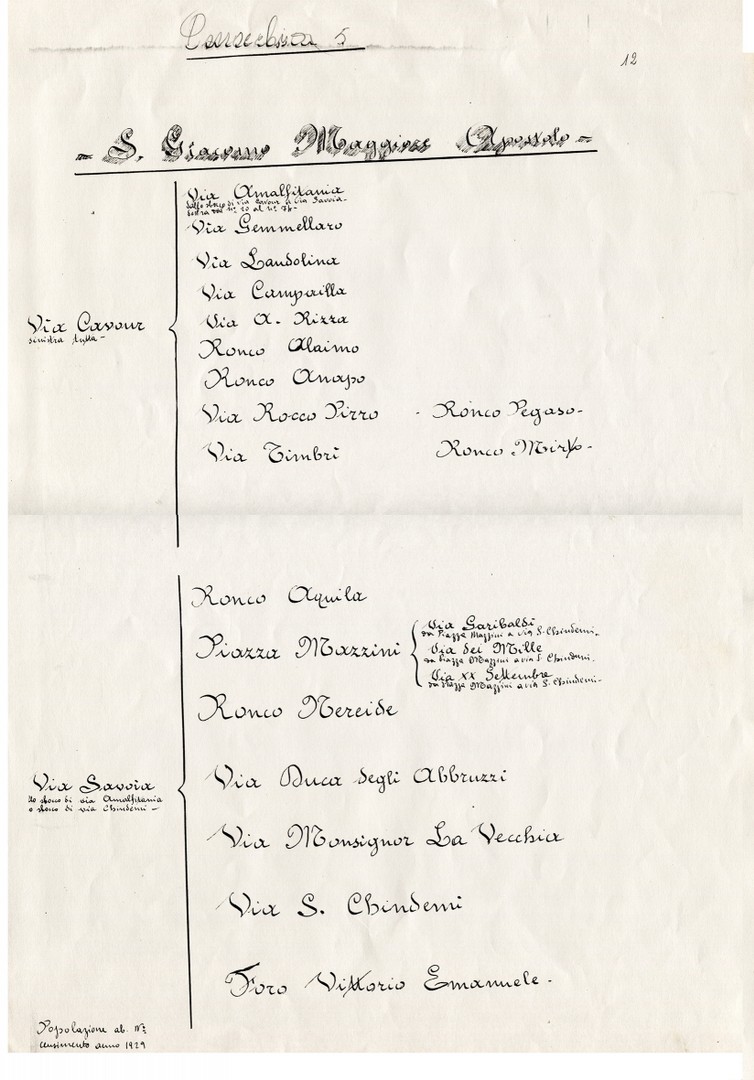 Parrocchia 5
12
- S. Giacomo Maggiore Apostolo -
Via Amalfitania
dallo sbocco di via Cavour a via Savoia
destra dal nº 20 al nº 76-
Via Gemmellaro
Via Landolina
Via Campailla
Via Cavour
sinistra tutta -
Via A. Rizza
Ronco Alaimo
Ronco Anapo
Via Rocco Pirro - Ronco Pegaso -
Via Timbri Ronco Mirto -
Ronco Aquila
Piazza Mazzini
Via Garibaldi
da Piazza Mazzini a via S. Chindemi -
Via dei Mille
da Piazza Mazzini a via S. Chindemi -
Via XX Settembre
da Piazza Mazzini a via S. Chindemi -
Ronco Nereide
Via Savoia
sbocco di via Amalfitania
sbocco di via Chindemi -
Via Duca degli Abbruzzi
Via Monsignor La Vecchia
Via S. Chindemi
Foro Vittorio Emanuele -
Popolazione ab. Nº
Censimento anno 1929